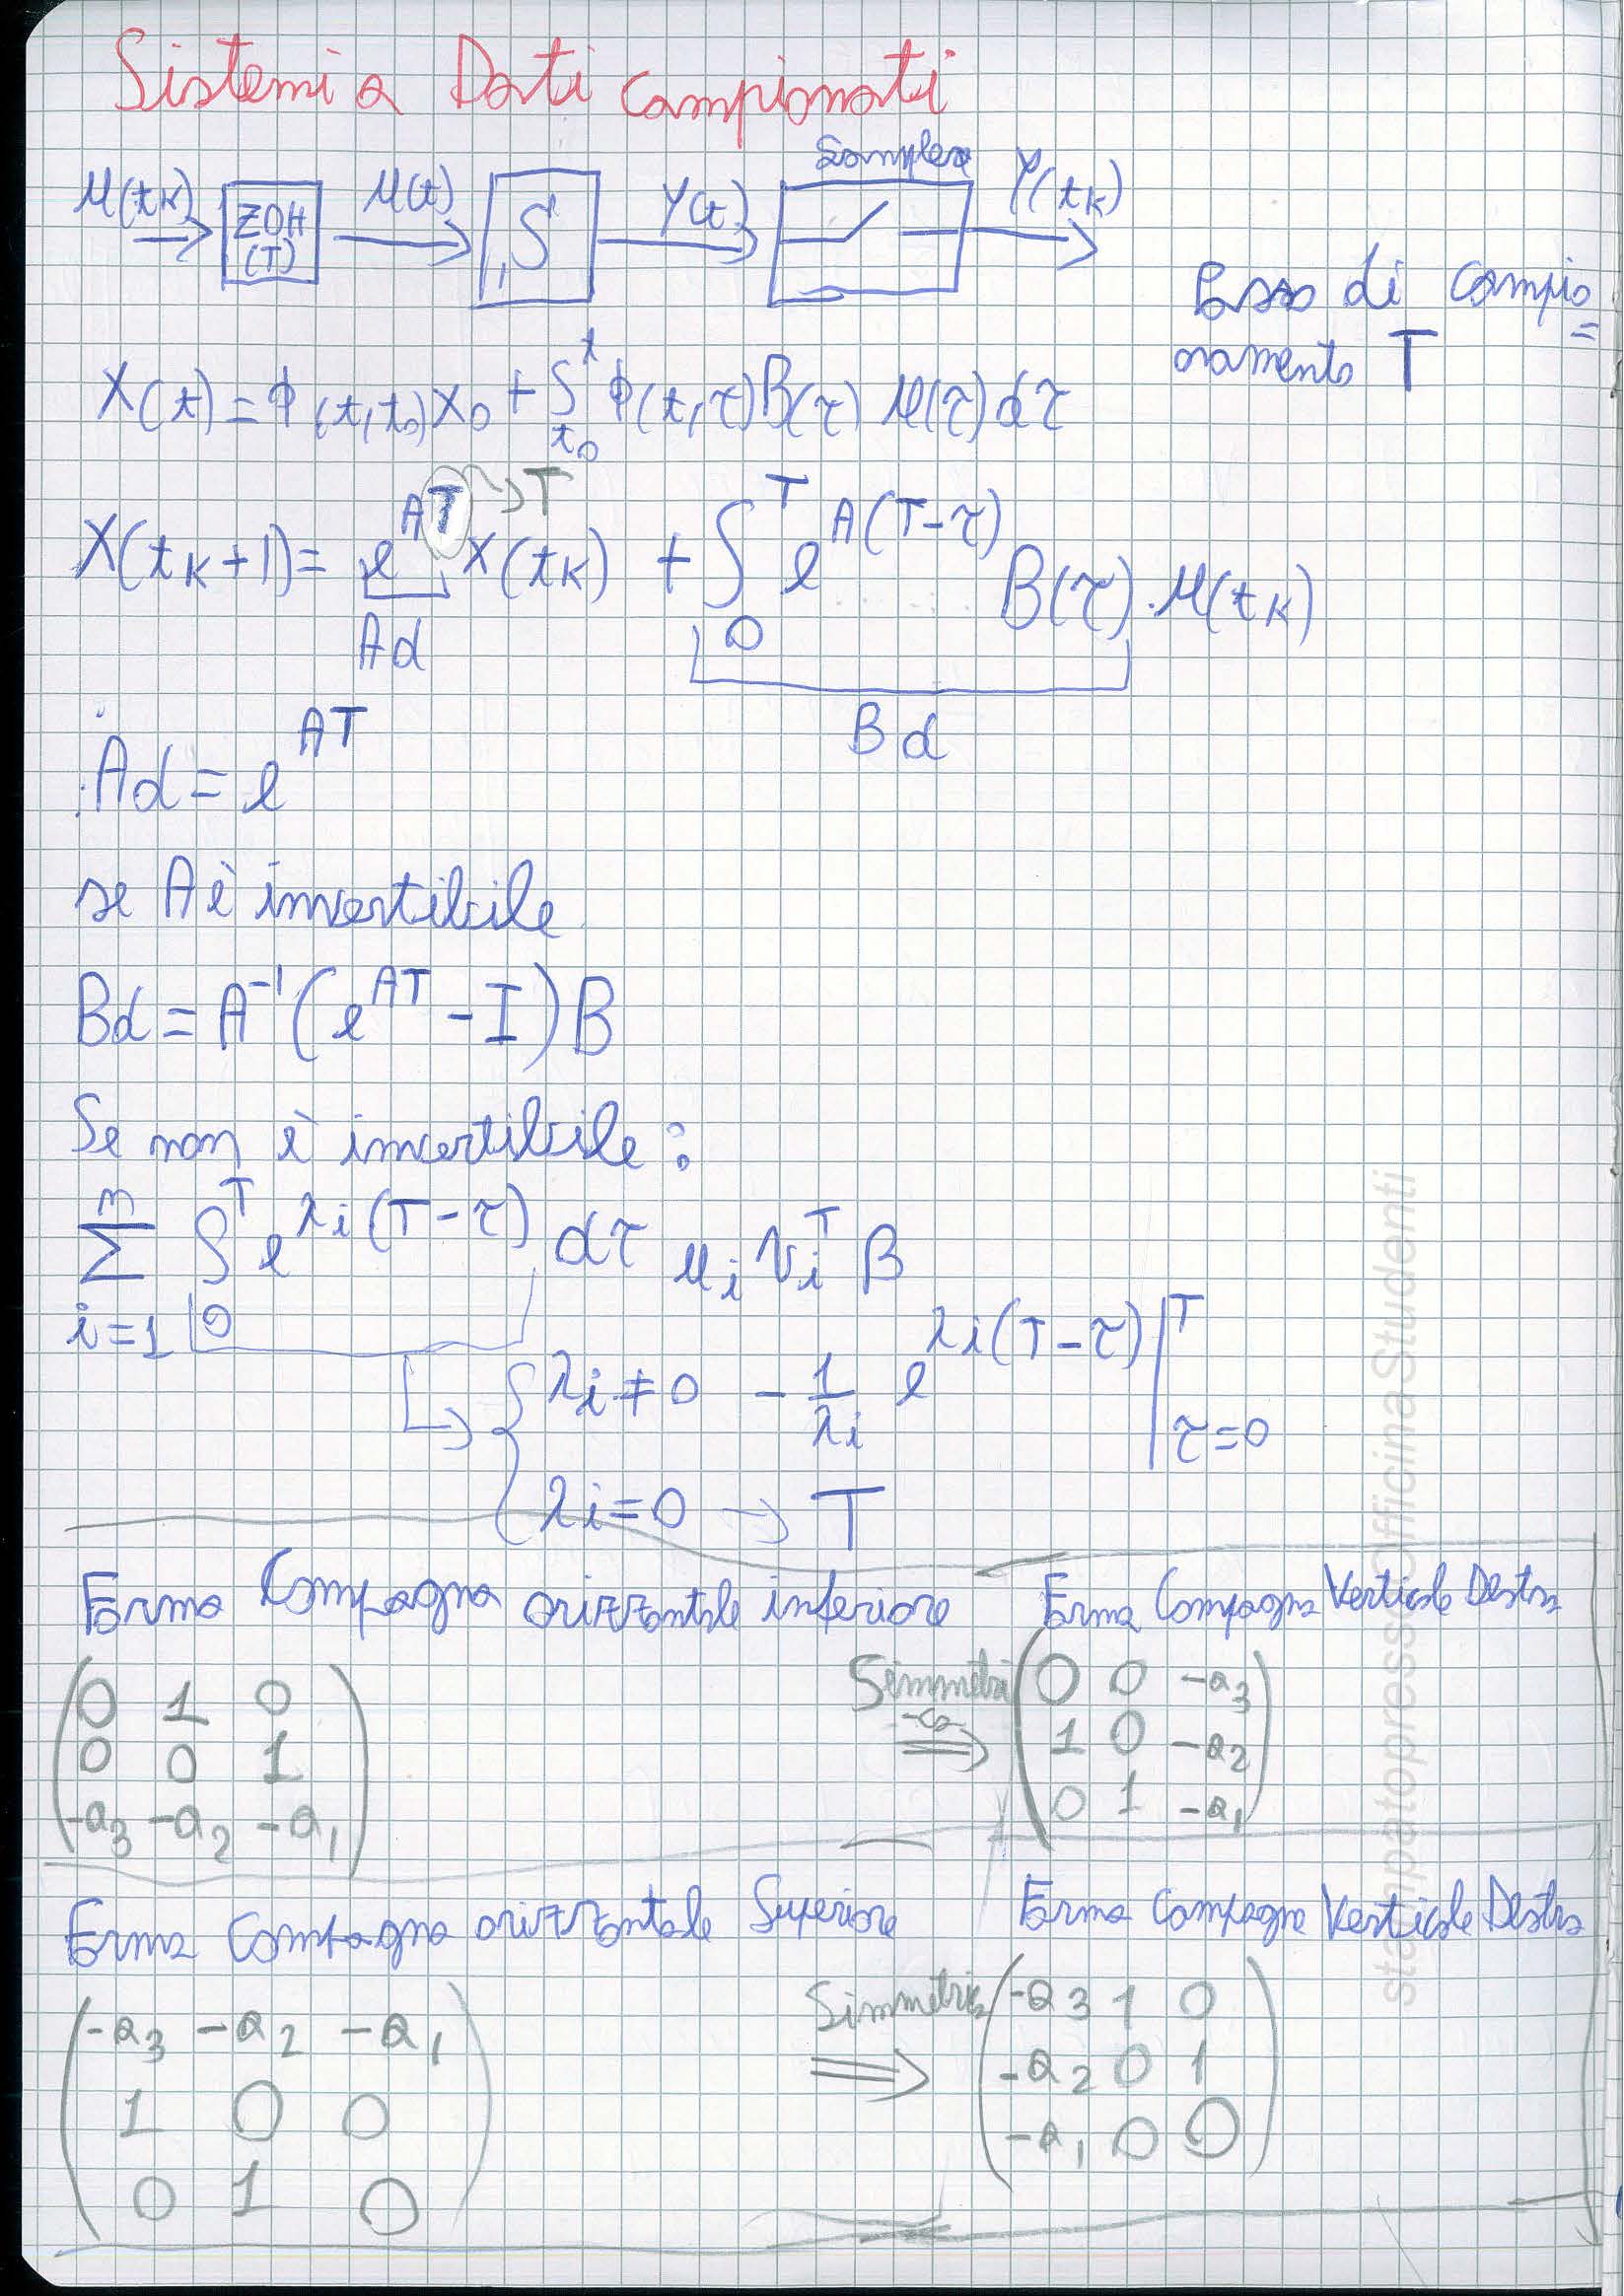 Sistemi a Dati campionati
u(tk) ZOH (T) u(t) S Y(t) Sampler Y(tk)
Passo di campio=
namento T
X(t) = Φ(t,t0)X0 + ∫t0^t Φ(t,τ)B(τ) u(τ)dτ
X(tk+1) = e^AT → T X(tk) + ∫0^T e^A(T-τ) B(τ)·u(tk)
Ad
Bd
Ad = e^AT
se A è invertibile
Bd = A^-1 (e^AT - I)B
Se non è invertibile:
∑i=1^n ∫0^T e^λi(T-τ) dτ ui vi^T B
λi ≠ 0 - 1/λi e^λi(T-τ) |τ=0^T
λi = 0 → T
Forma Compagna orizzontale inferiore
0 1 0
0 0 1
-a3 -a2 -a1
Simmetri
-ca
⇒
Forma Compagna Verticale Destra
0 0 -a3
1 0 -a2
0 1 -a1
Forma Compagna orizzontale Superiore
-a3 -a2 -a1
1 0 0
0 1 0
Simmetrica
⇒
Forma Compagna Verticale Destra
-a3 1 0
-a2 0 1
-a1 0 0
stampatopressoOfficinaStudenti